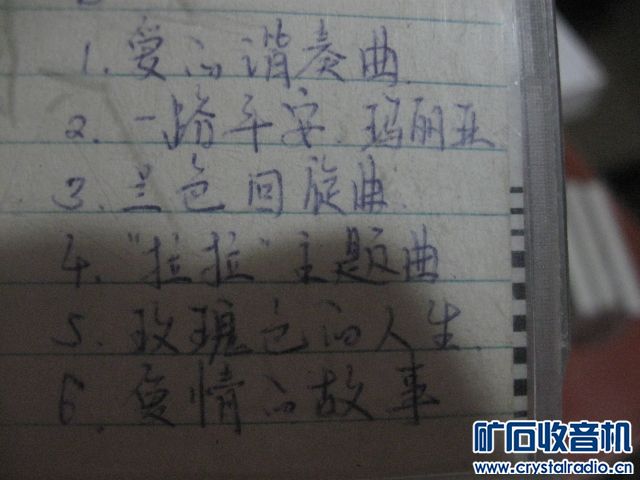 1. 爱的谐奏曲.
2. 一路平安.玛丽亚
3. 兰色回旋曲.
4. "拉拉"主题曲.
5. 玫瑰色的人生.
6. 爱情的故事
矿石收音机
www.crystalradio.cn